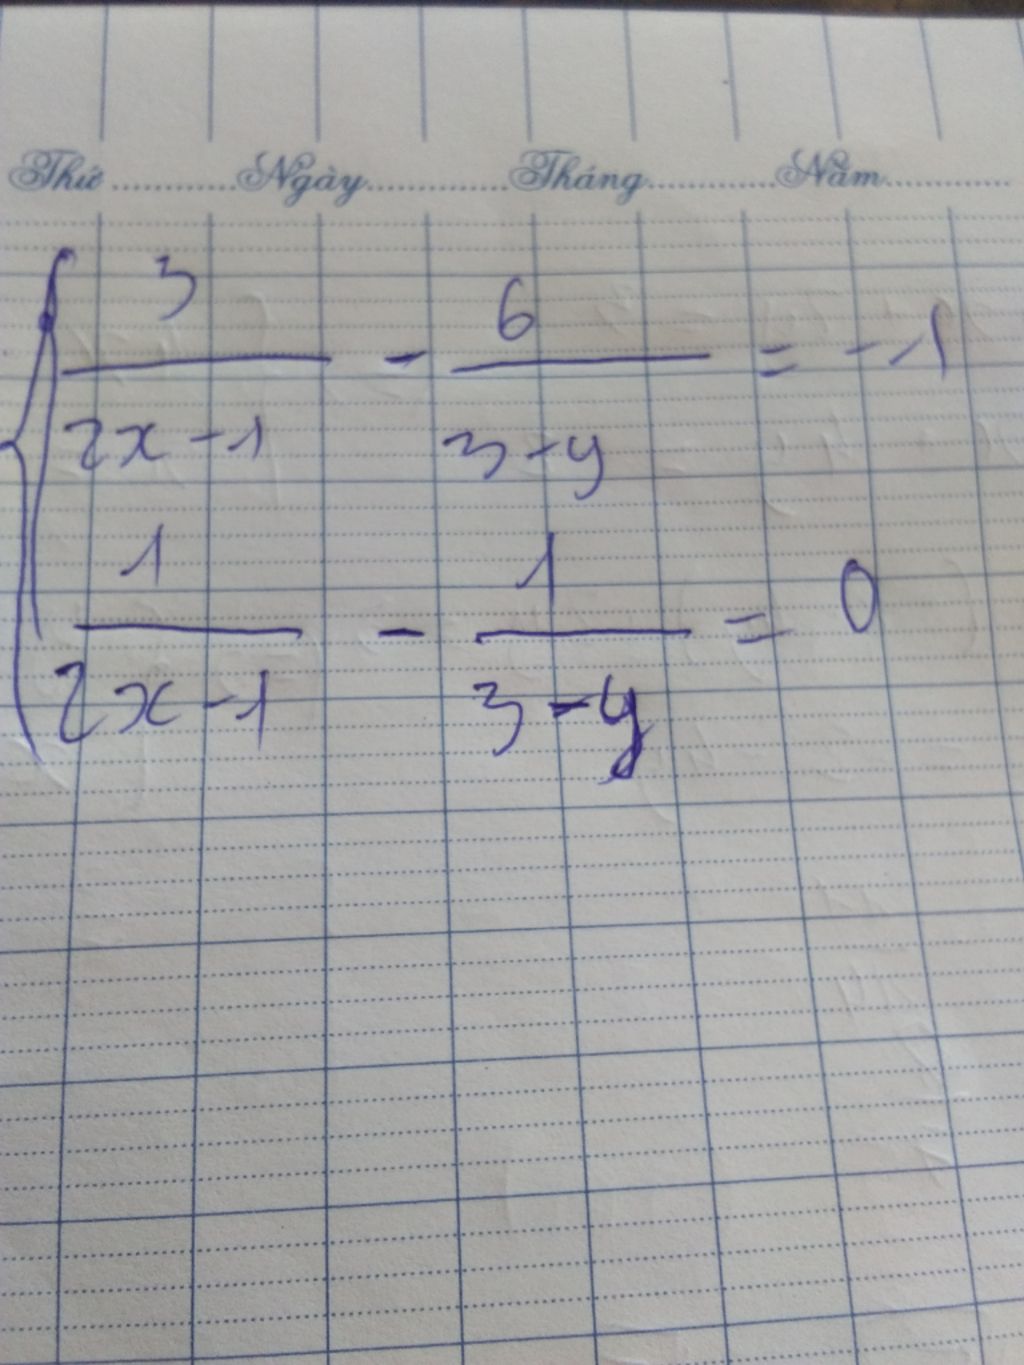 Thứ ............ Ngày ............ Tháng ............ Năm ............
3/(2x-1) - 6/(3-y) = -1
1/(2x-1) - 1/(3-y) = 0